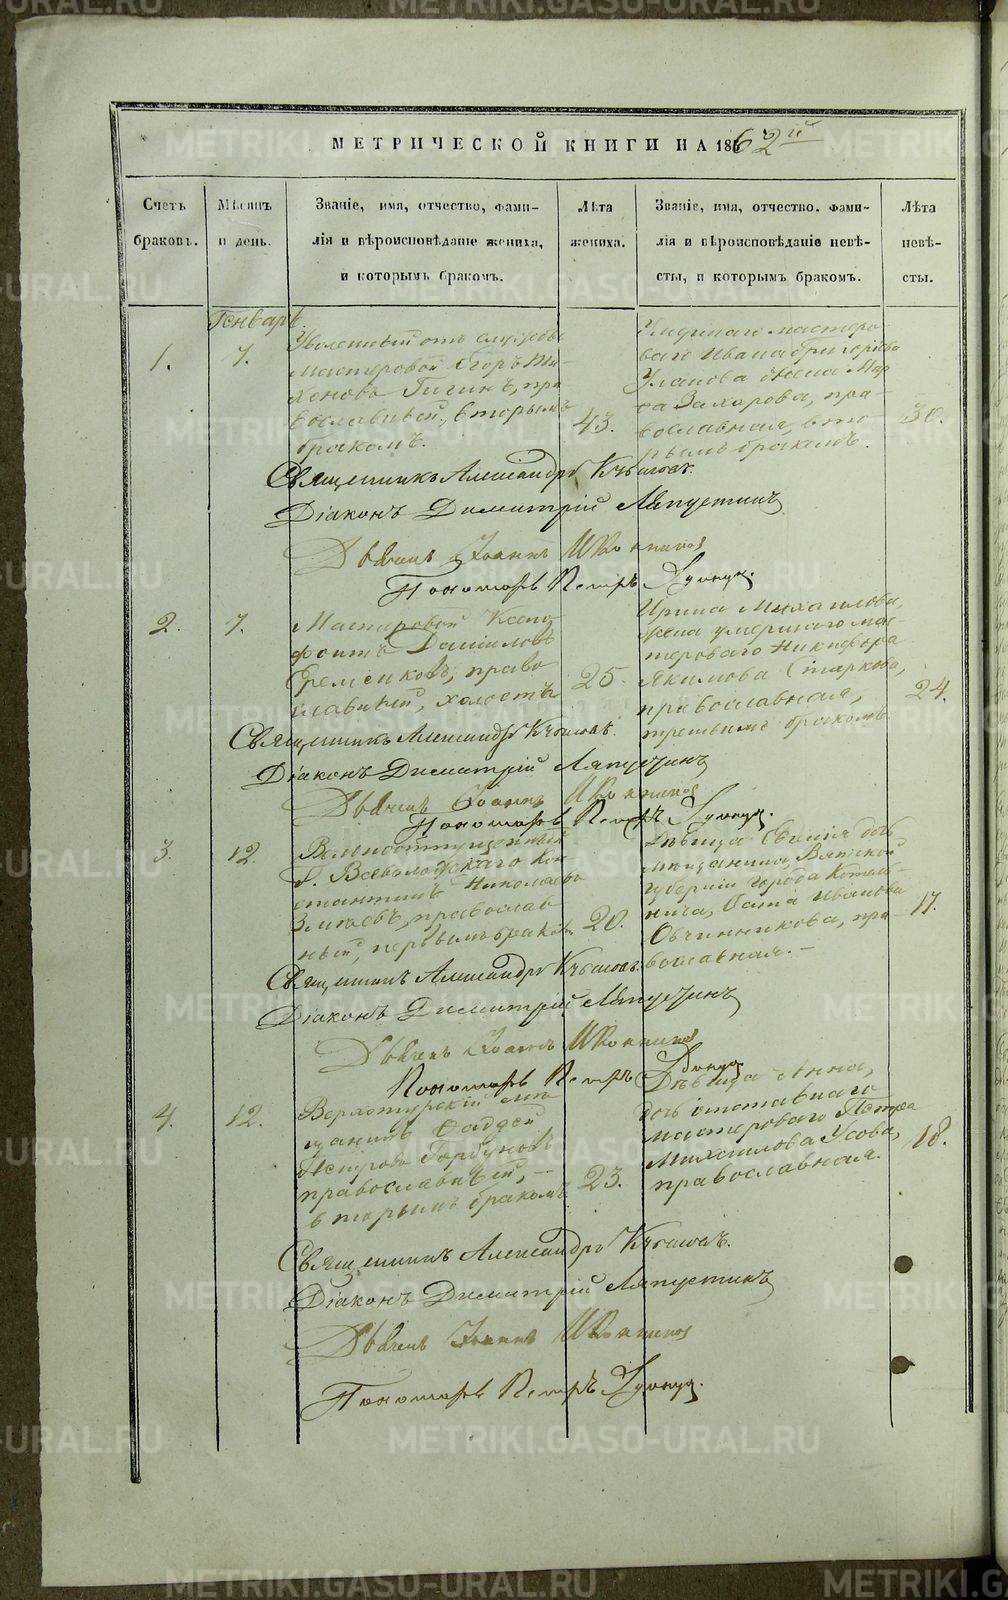 МЕТРИЧЕСКОЙ КНИГИ НА 1862й
Счетъ браковъ.
Мѣсяцъ и день.
Званіе, имя, отчество, фами-
лія и вѣроисповѣданіе жениха,
и которымъ бракомъ.
Лѣта жениха.
Званіе, имя, отчество, фами-
лія и вѣроисповѣданіе невѣ-
сты, и которымъ бракомъ.
Лѣта невѣ-
сты.
Генварь
1.
7.
Уволенный отъ службы
мастеровой Егоръ Ти-
хоновъ православный, вторымъ
бракомъ.
43.
Умершаго мастеро-
ваго Ивана Григорьева
Уланова жена Мар-
ѳа Захарова, пра-
вославная, вто-
рымъ бракомъ.
30.
Священникъ Александръ
Діаконъ Димитрій Ляпустинъ
Дьячекъ Іоаннъ
Пономарь Петръ
2.
7.
Мастеровой Ксено-
фонтъ Даниловъ
право
славный, холостъ
25.
Ирина Михаилова,
жена умершаго мас-
героваго Никифора
Якимова Старкова,
православная,
третьимъ бракомъ.
24.
Священникъ Александръ
Діаконъ Димитрій Ляпустинъ
Дьячекъ Іоаннъ
Пономарь Петръ
3.
12.
Вольноотпущенный
г. Всеволожскаго Кон-
стантинъ Николаевъ
православ
ный, первымъ бракомъ.
20.
Дѣвица Евгенія дочь
мѣщанина Вятской
губерніи города Котель-
нича, Иванова
Овчинникова, пра-
вославная.-
17.
Священникъ Александръ
Діаконъ Димитрій Ляпустинъ
Дьячекъ Іоаннъ
Пономарь Петръ
4.
12.
Верхотурскій мѣ
щанинъ Фаддей
Петровъ Горбуновъ
православный,-
вторымъ бракомъ
23.
Дѣвица Анна,
дочь отставнаго
мастероваго Петра
Михаилова Усова,
православная.
18.
Священникъ Александръ
Діаконъ Димитрій Ляпустинъ
Дьячекъ Іоаннъ
Пономарь Петръ
METRIKI.GASO-URAL.RU